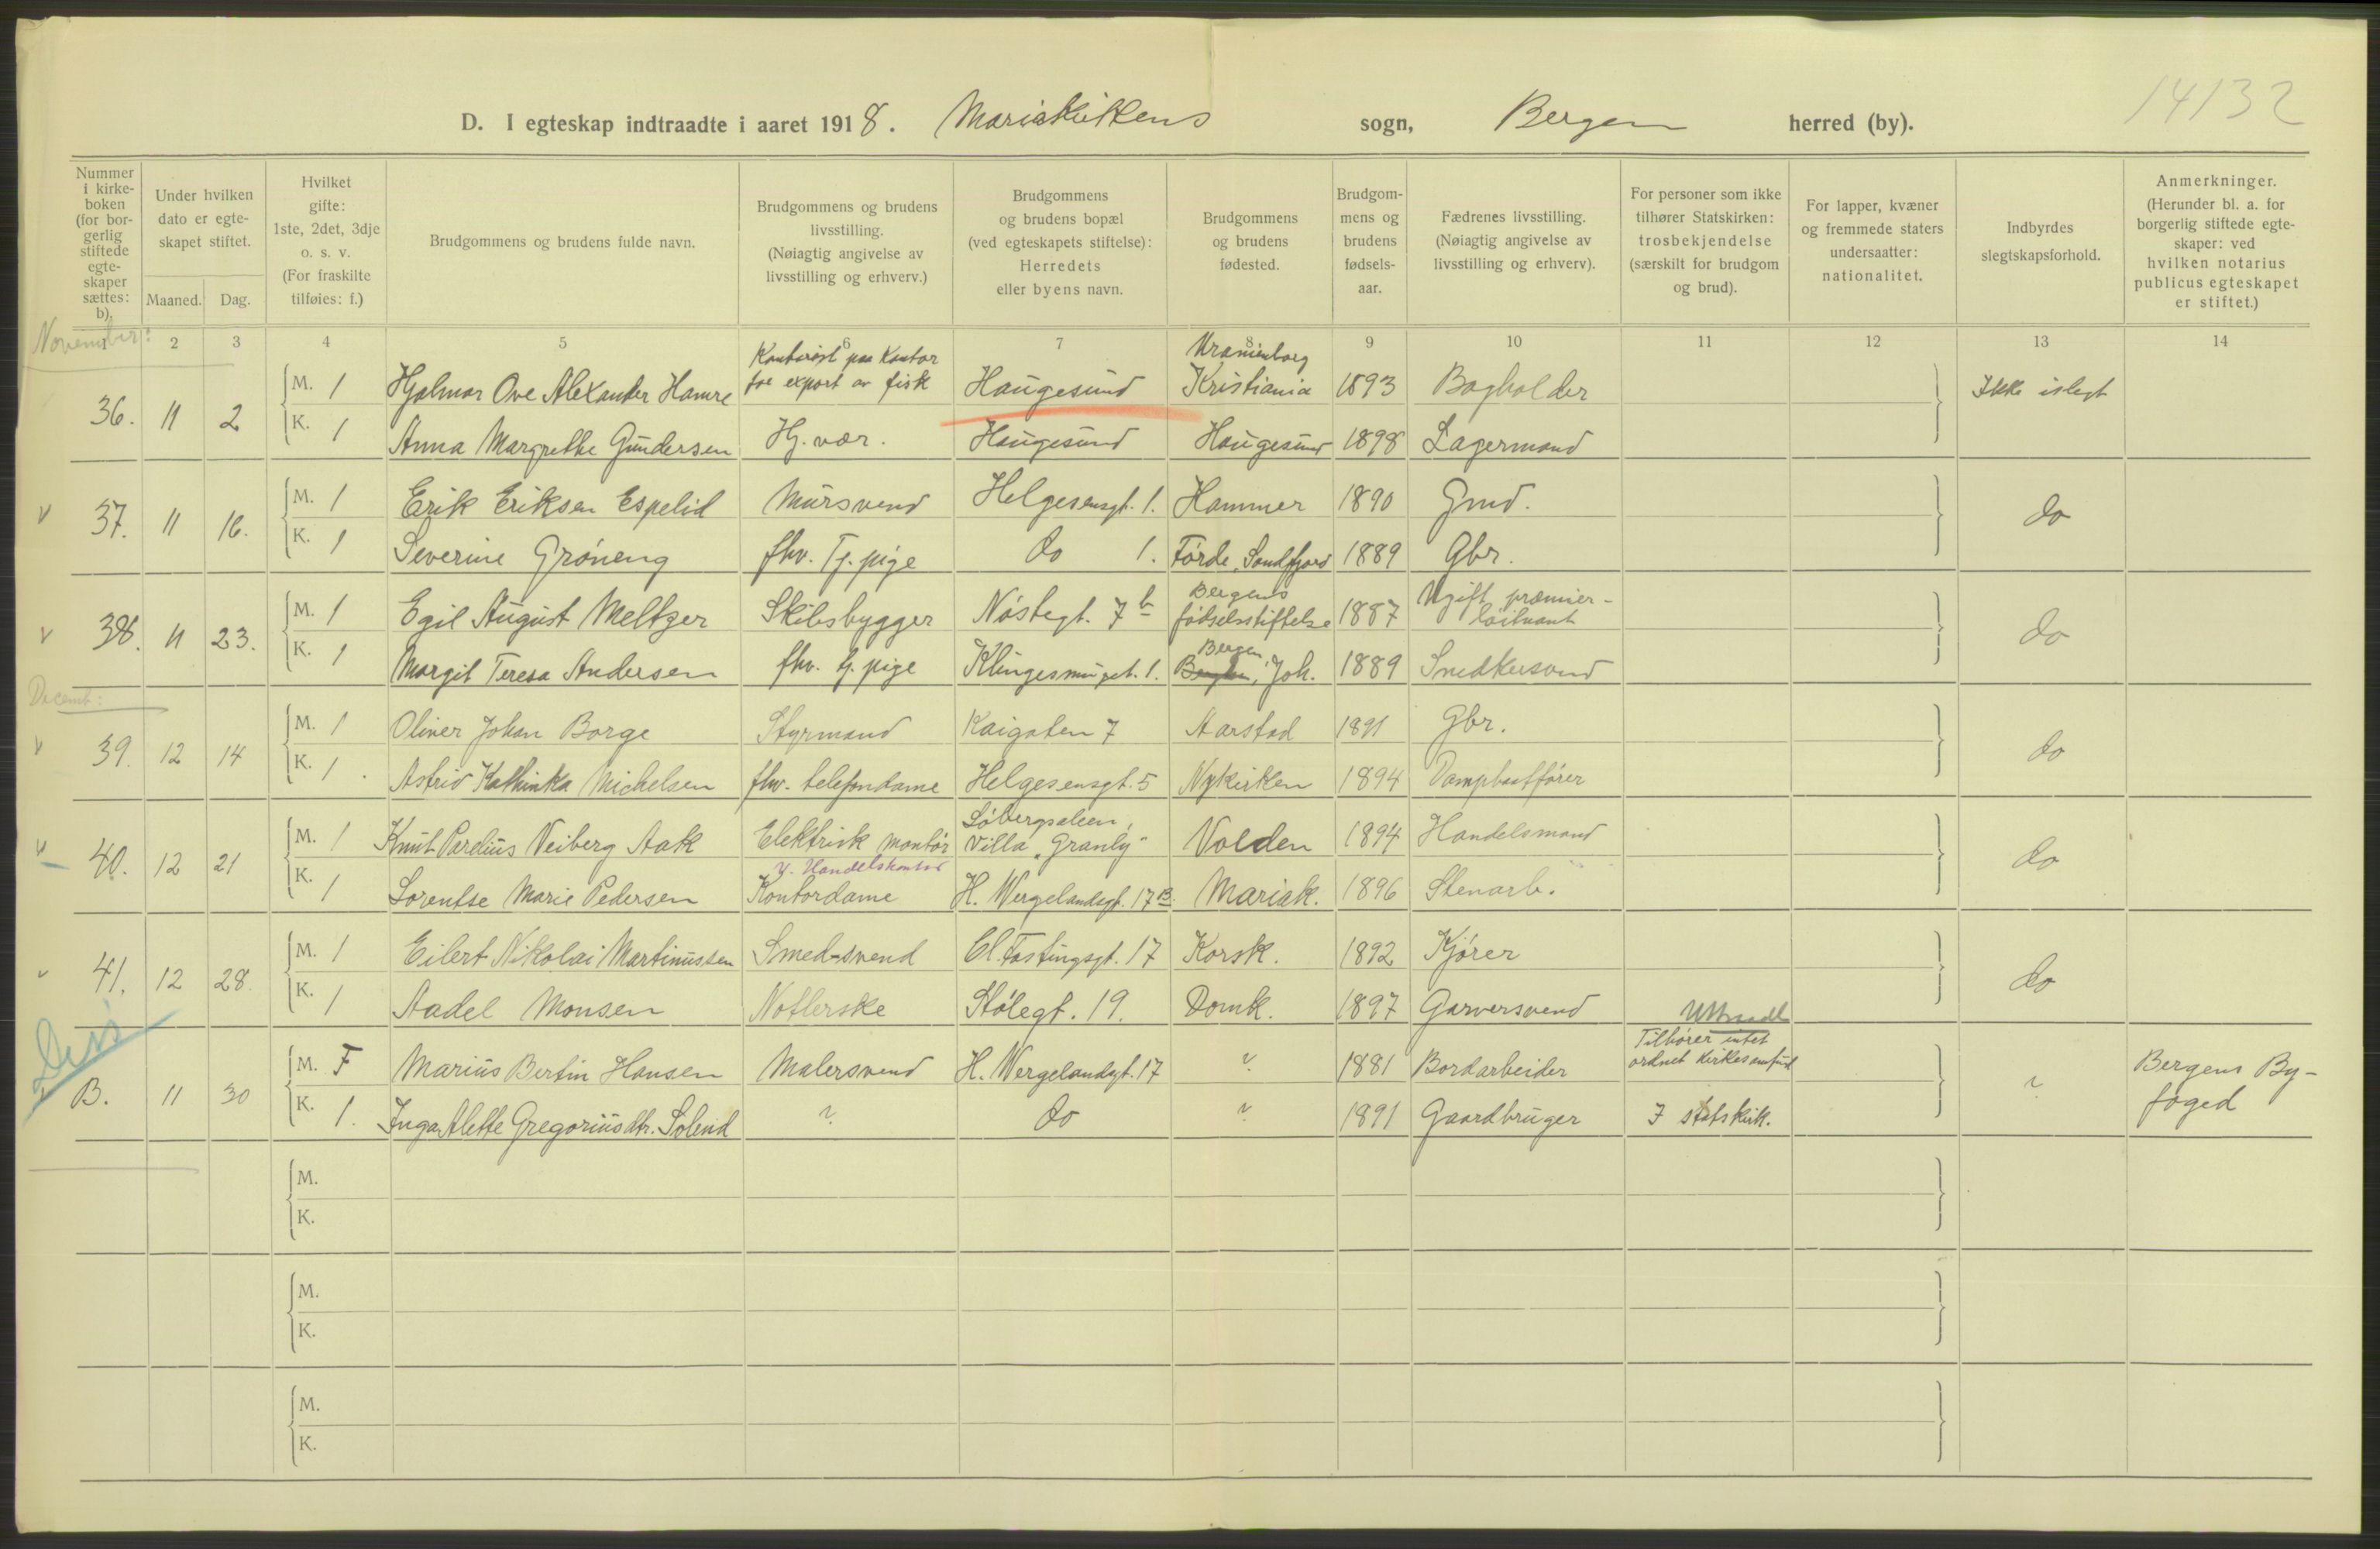 14132
D. I egteskap indtraadte i aaret 1918. Mariakirkens sogn, Bergen herred (by).
Nummer i kirke-boken (for bor-gerlig stiftede egte-skaper sættes: b).
Under hvilken dato er egte-skapet stiftet.
Maaned. Dag.
Hvilket gifte: 1ste, 2det, 3dje o. s. v. (For fraskilte tilføies: f.)
Brudgommens og brudens fulde navn.
Brudgommens og brudens livsstilling. (Nøiagtig angivelse av livsstilling og erhverv.)
Brudgommens og brudens bopæl (ved egteskapets stiftelse): Herredets eller byens navn.
Brudgommens og brudens fødested.
Brudgom-mens og brudens fødsels-aar.
Fædrenes livsstilling. (Nøiagtig angivelse av livsstilling og erhverv).
For personer som ikke tilhører Statskirken: trosbekjendelse (særskilt for brudgom og brud).
For lapper, kvæner og fremmede staters undersaatter: nationalitet.
Indbyrdes slegtskapsforhold.
Anmerkninger. (Herunder bl. a. for borgerlig stiftede egte-skaper: ved hvilken notarius publicus egteskapet er stiftet.)
1 2 3 4 5 6 7 8 9 10 11 12 13 14
November:
36. 11 2 M. 1 Hjalmar Ove Alexander Hamre Kontorist paa Kontor for export av fisk Haugesund Uranienborg Kristiania 1893 Bogholder Ikke i slegt
K. 1 Anna Margrethe Gundersen Hj. vær. Haugesund Haugesund 1898 Lagermand
v 37. 11 16. M. 1 Erik Eriksen Espelid Mursvend Helgesensgt. 1. Hammer 1890 Gmd. do
K. 1 Severine Gröneng fhv. Tj. pige do 1. Förde, Söndfjord 1889 Gbr.
v 38. 11 23. M. 1 Egil August Meltzer Skibsbygger Nöstegt. 7 b Bergens födselsstiftelse 1887 Ugift premier-löitnant do
K. 1 Margit Teresa Andersen fhv. tj. pige Klingesmuget. 1. Bergen, Joh. 1889 Snedkersvend
Decemb:
v 39. 12 14 M. 1 Oliver Johan Borge Styrmand Kaigaten 7 Aarstad 1891 Gbr. do
K. 1. Astrid Kathinka Michelsen fhv. telefondame Helgesensgt. 5 Nykirken 1894 Dampbaatförer
v 40. 12 21 M. 1 Knut Parelius Neiberg Aak Elektrisk montör Löbergsaleen, Villa "Granly" Volden 1894 Handelsmand do
K. 1 Lorentse Marie Pedersen Handelskontor Kontordame H. Wergelandsgt. 17 B. Mariak. 1896 Stenarb.
v 41. 12 28. M. 1 Eilert Nikolai Martinussen Smedsvend Cl. Fastingsgt. 17 Korsk. 1892 Kjörer do
K. 1 Aadel Monsen Notlerske Stölegt. 19. Domk. 1897 Garversvend
Diss
B. 11 30 M. F Marius Bertin Hansen Malersvend H. Wergelandsgt. 17 ? 1881 Bordarbeider Uttraadt Tilhörer intet ordnet kirkesamfund ? Bergens By-foged
K. 1. Inga Alette Gregoriusdtr. Solend ? do ? 1891 Gaardbruger I statskirk.
M.
K.
M.
K.
M.
K.